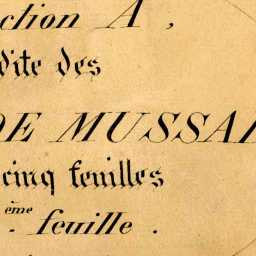 ction A,
dite des
DE MUSSA
cinq feuilles
ème feuille.